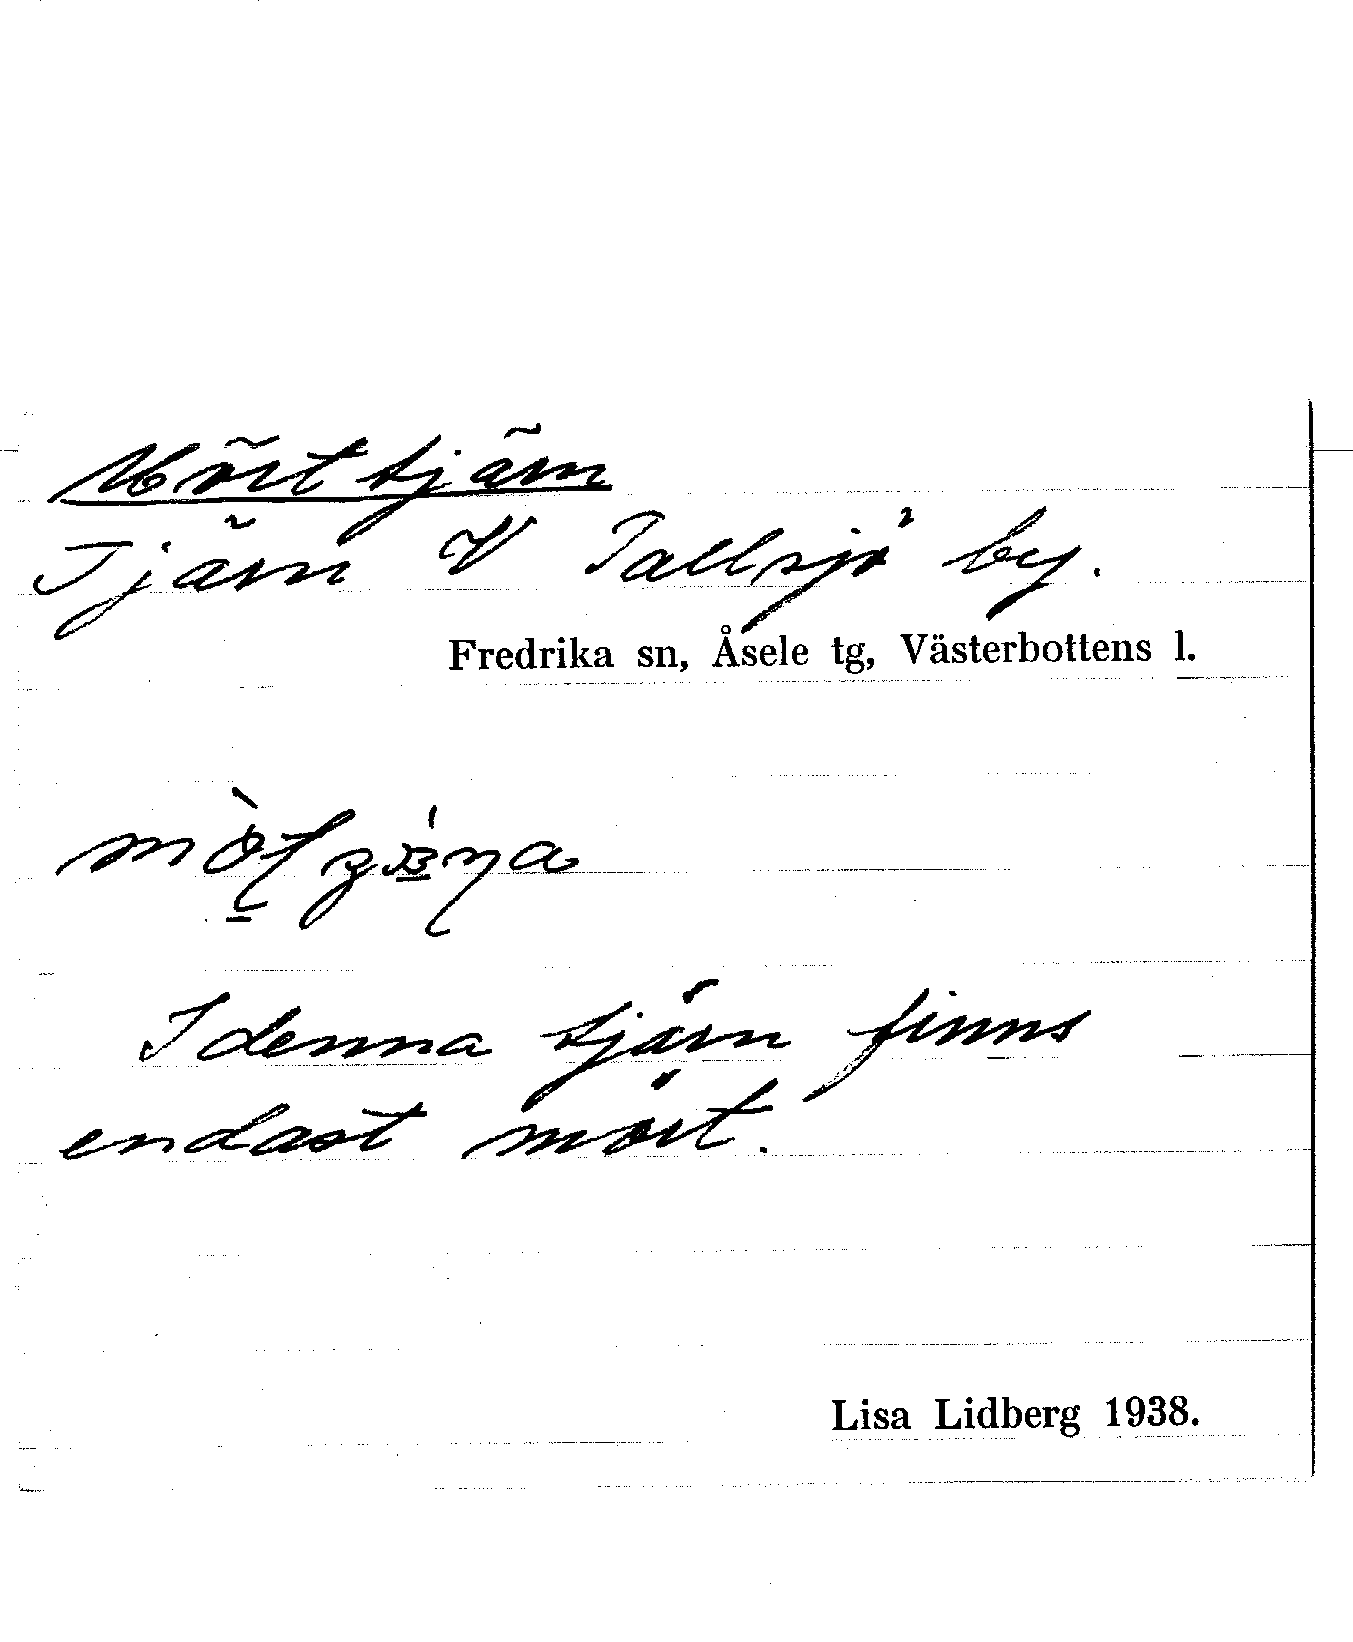 Mörttjärn
Tjärn V Tallsjö by.
Fredrika sn, Åsele tg, Västerbottens l.
I denna tjärn finns
endast mört.
Lisa Lidberg 1938.